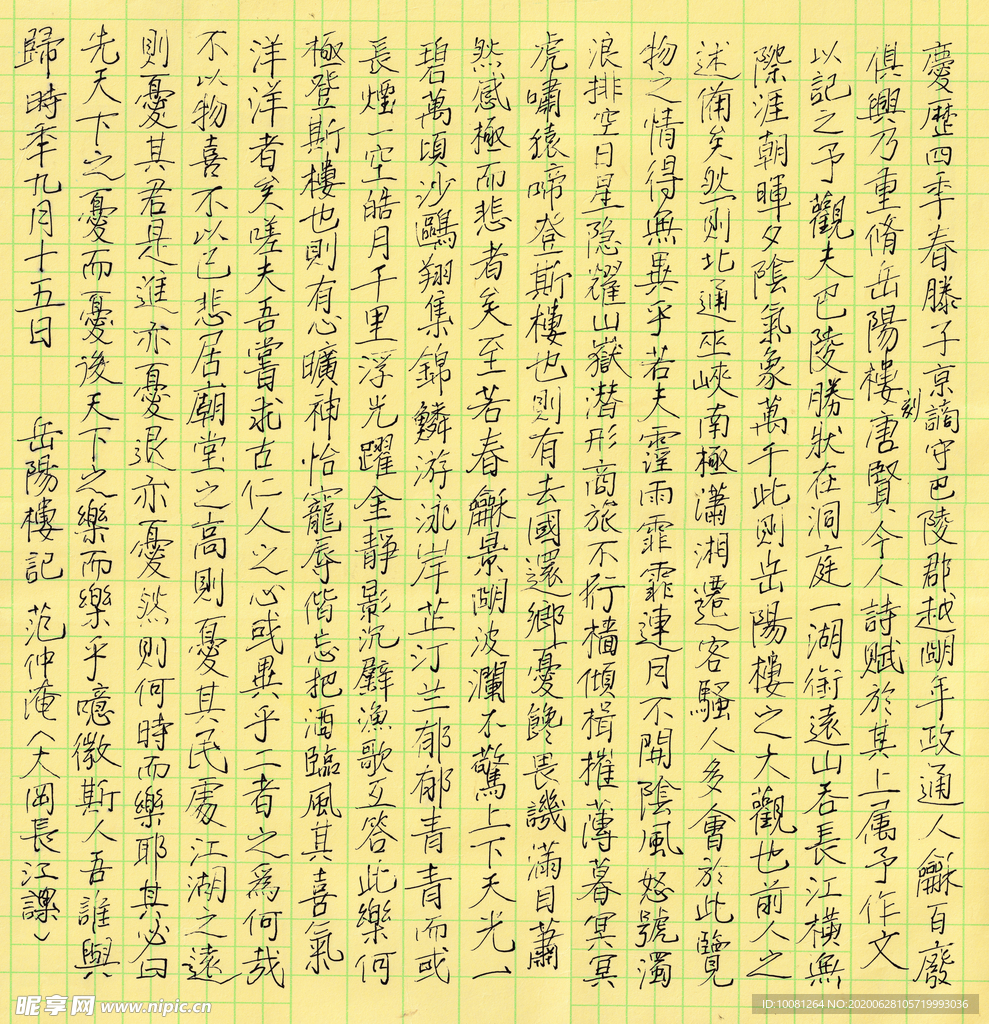 慶歷四年春滕子京謫守巴陵郡越明年政通人龢百廢
俱興乃重脩岳陽樓唐賢今人詩賦於其上属予作文
刻
以記之予觀夫巴陵勝狀在洞庭一湖銜遠山吞長江橫無
際涯朝暉夕陰氣象萬千此則岳陽樓之大觀也前人之
述備矣然則北通巫峽南極瀟湘遷客騷人多會於此覽
物之情得無異乎若夫霪雨霏霏連月不開陰風怒號濁
浪排空日星隐耀山嶽潜形商旅不行檣傾楫摧薄暮冥冥
虎嘯猿啼登斯樓也則有去國還鄉憂饞畏譏滿目蕭
然感極而悲者矣至若春龢景明波瀾不驚上下天光一
碧萬頃沙鷗翔集錦鱗游泳岸芷汀兰郁郁青青而或
長煙一空皓月千里浮光躍金靜影沉璧漁歌互答此樂何
極登斯樓也則有心曠神怡寵辱偕忘把酒臨風其喜氣
洋洋者矣嗟夫吾嘗求古仁人之心或異乎二者之爲何哉
不以物喜不以己悲居廟堂之高則憂其民處江湖之遠
則憂其君是進亦憂退亦憂然則何時而樂耶其必曰
先天下之憂而憂後天下之樂而樂乎噫微斯人吾誰與
歸時年九月十五日 岳陽樓記 范仲淹(大岡長江課)
昵享网 www.nipic.cn
ID:10081264 NO:20200628105719993036